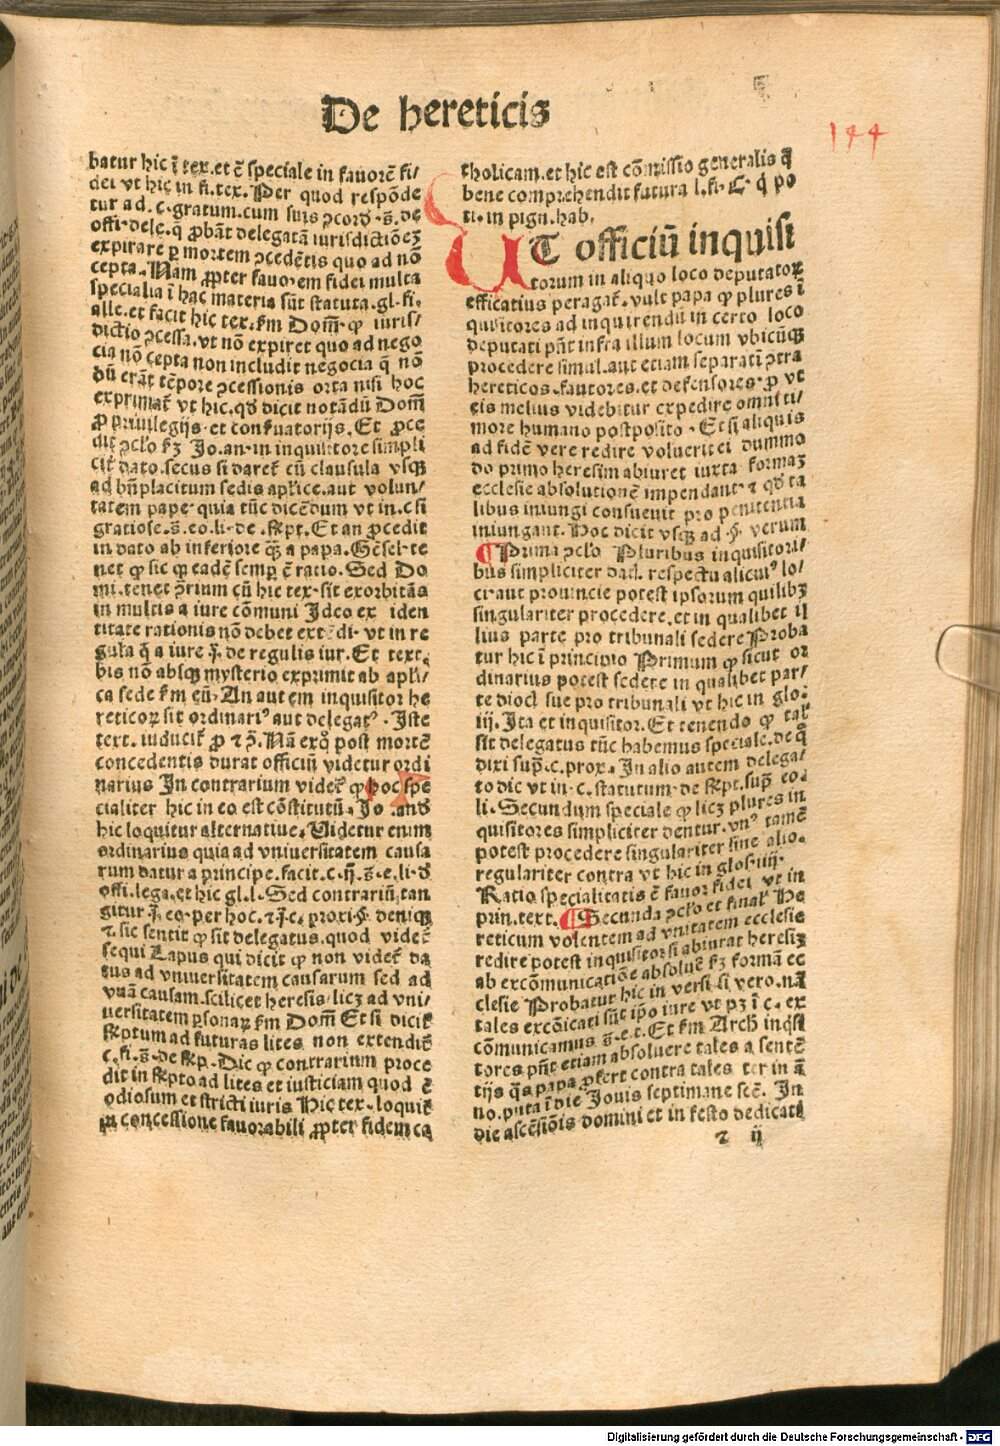 De hereticis
144
batur hic ī tex. et ē speciale in fauorē fi/
dei vt hic in fi. tex. Per quod respōde
tur ad. c. gratum. cum suis ↄcord. s̄. de
offi. dele. q̄ ꝓbāt delegatā iurisdictiōeꝫ
expirare ꝑ mortem ↄcedētis quo ad nō
cepta. Nam ꝓpter fauorem fidei multa
specialia ī hac materia sūt statuta. gl. fi.
alle. et facit hic tex. fm Dom̄. ꝙ iuris/
dictio ↄcessa. vt nō expiret quo ad nego
cia nō cepta non includit negocia q̄ nō
dū erāt tēpore ↄcessionis orta nisi hoc
exprimat̄ vt hic. qd̄ dicit notādū Dom̄
ꝓ priuilegijs et conseruatorijs. Et ꝓce
dit ↄclo fꝫ Jo. an. in inquisitore simpli
cit̄ dato. secus si daret̄ cū clausula vsqꝫ
ad bn̄placitum sedis aplice. aut volun/
tatem pape. quia tūc dicēdum vt in. c si
gratiose. s̄. eo. li. de rescpt. Et an ꝓcedit
in dato ab inferiore qꝫ a papa. Gēsel. te
net ꝙ sic ꝙ eadē semꝑ ē ratio. Sed Do
mi. tenet ꝯrium cū hic tex. sit exorbitās
in multis a iure cōmuni Ideo ex iden
titate rationis nō debet extēdi. vt in re
gula q̄ a iure j̄. de regulis iur. Et text.
bis nō absqꝫ mysterio exprimit ab apli/
ca sede fm eū. An autem inquisitor he
reticoꝝ sit ordinariꝰ aut delegatꝰ. Iste
text. inducit̄ ꝓ ⁊ ꝯ. Nā exq̊ post mortē
concedentis durat officiū videtur ordi
narius In contrarium videt̄ ꝙ hoc spe
cialiter hic in eo est cōstitutū. Jo. and
hic loquitur alternatiue. Videtur enim
ordinarius quia ad vniuersitatem causa
rum datur a principe. facit. c. ij. s̄. e. li. d̄
offi. lega. et hic gl. l. Sed contrariū tan
gitur j̄. eo. per hoc. ⁊ j̄. c. proxi. §. deniqꝫ
⁊. sic sentit ꝙ sit delegatus. quod videt̄
sequi Lapus qui dicit ꝙ non videt̄ da
tus ad vniuersitatem causarum sed ad
vnā causam. scilicet heresis. licꝫ ad vni/
uersitatem ꝑsonaꝝ fm Dom̄ Et si dicit̄
rescptum ad futuras lites non extendit̄
c. fi. s̄. de rescp. Dic ꝙ contrarium proce
dit in rescpto ad lites et iusticiam quod ē
odiosum et stricti iuris Hic tex. loquit̄
in concessione fauorabili ꝓpter fidem ca
tholicam. et hic est cōmissio generalis q̄
bene comprehendit futura l. fi. C. q̄ po
ti. in pign. hab.
UT officiū inquisi
torum in aliquo loco deputatoꝝ
efficatius peragat̄. vult papa ꝙ plures ī
quisitores ad inquirendū in certo loco
deputati pn̄t infra illum locum vbicūqꝫ
procedere simul. aut etiam separati ↄtra
hereticos. fautores. et defensores. ꝓ vt
eis melius videbitur expedire omni ti/
more humano postposito. Et si aliquis
ad fidē vere redire voluerit ei dummo
do primo heresim abiuret iuxta formaꝫ
ecclesie absolutionē impendant. ⁊ qd̄ ta
libus iniungi consueuit pro penitentia
iniungant. Hoc dicit vsqꝫ ad §. verum
Prima ↄclo Pluribus inquisitori/
bus simpliciter dat. respectu alicuiꝰ lo/
ci aut prouincie potest ipsorum quilibꝫ
singulariter procedere. et in qualibet il
lius parte pro tribunali sedere Proba
tur hic ī principio Primum ꝙ sicut or
dinarius potest sedere in qualibet par/
te diocl sue pro tribunali vt hic in glo.
iij. Ita et inquisitor. Et tenendo ꝙ tal̄
sit delegatus tūc habemus speciale. de q̊
dixi sup̄. c. prox. In alio autem delega/
to dic vt in. c. statutum. de rescpt. sup̄. eo.
li. Secundum speciale ꝙ licꝫ plures in
quisitores simpliciter dentur. vnꝰ tamē
potest procedere singulariter sine alio.
regulariter contra vt hic in glos. iiij.
Ratio specialitatis ē fauor fidei vt in
prin. text. Secunda ↄclo et final̄ He
reticum volentem ad vnitatem ecclesie
redire potest inquisitor si abiurat heresiꝫ
ab excōmunicatiōe absolue fꝫ formā ec
clesie Probatur hic in versi. si vero. nā
tales excōicati sūt ip̄o iure vt pꝫ ī c. ex
cōmunicamus s̄. e. t. Et fm Arch inqsi
tores pn̄t etiam absoluere tales a sentē
tijs q̄s papa ꝓfert contra tales ter in ā
no. puta ī die Jouis septimane scē. In
die ascēsiōis domini et in festo dedicati
⁊ ij
Digitalisierung gefördert durch die Deutsche Forschungsgemeinschaft - DFG